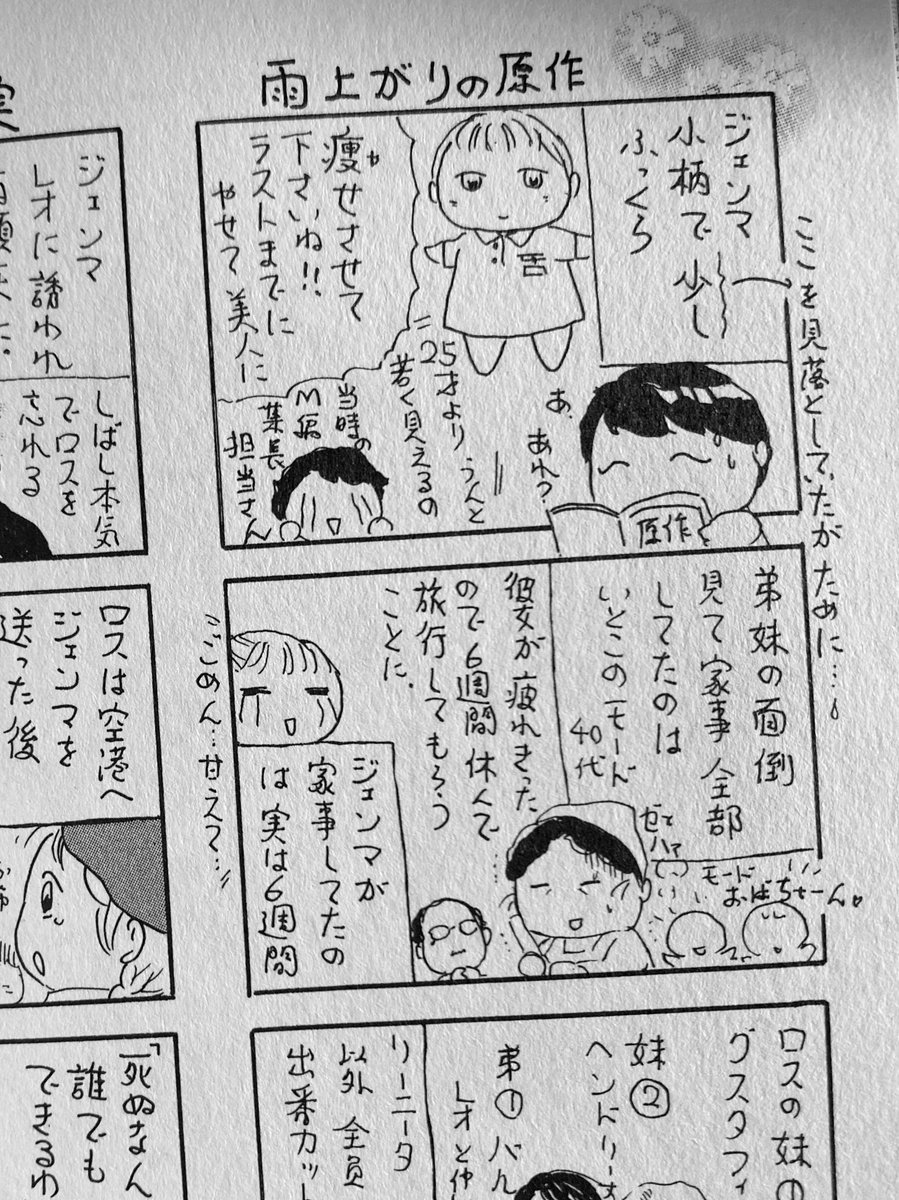 雨上がりの原作
ジェンマ
小柄で少し
ふっくら
ここを見落としていたがために…
あ、
あれ？
原作
25才より うんと
若く見えるの
痩せさせて
や
下さいね!!
ラストまでに
やせて 美人に
当時の
M編
集長
担当さん
弟妹の面倒
見て家事 全部
してたのは
いとこのモード
40代
ゼェ
ハァ
モード
おばちゃーん
彼女が疲れきった
ので6週間休んで
旅行してもろう
ことに.
ジェンマが
家事してたの
は 実は6週間
ごめん…甘えて…
ロスの妹の
グスタフィ
妹②
ヘンドリー
弟①バル
レオと仲
リーニータ
以外 全員
出番カット
実
ジェンマ
レオに誘われ
しばし本気
でロスを
忘れる
ロスは空港へ
ジェンマを
送った後
「死ぬなん
誰でも
できるわ